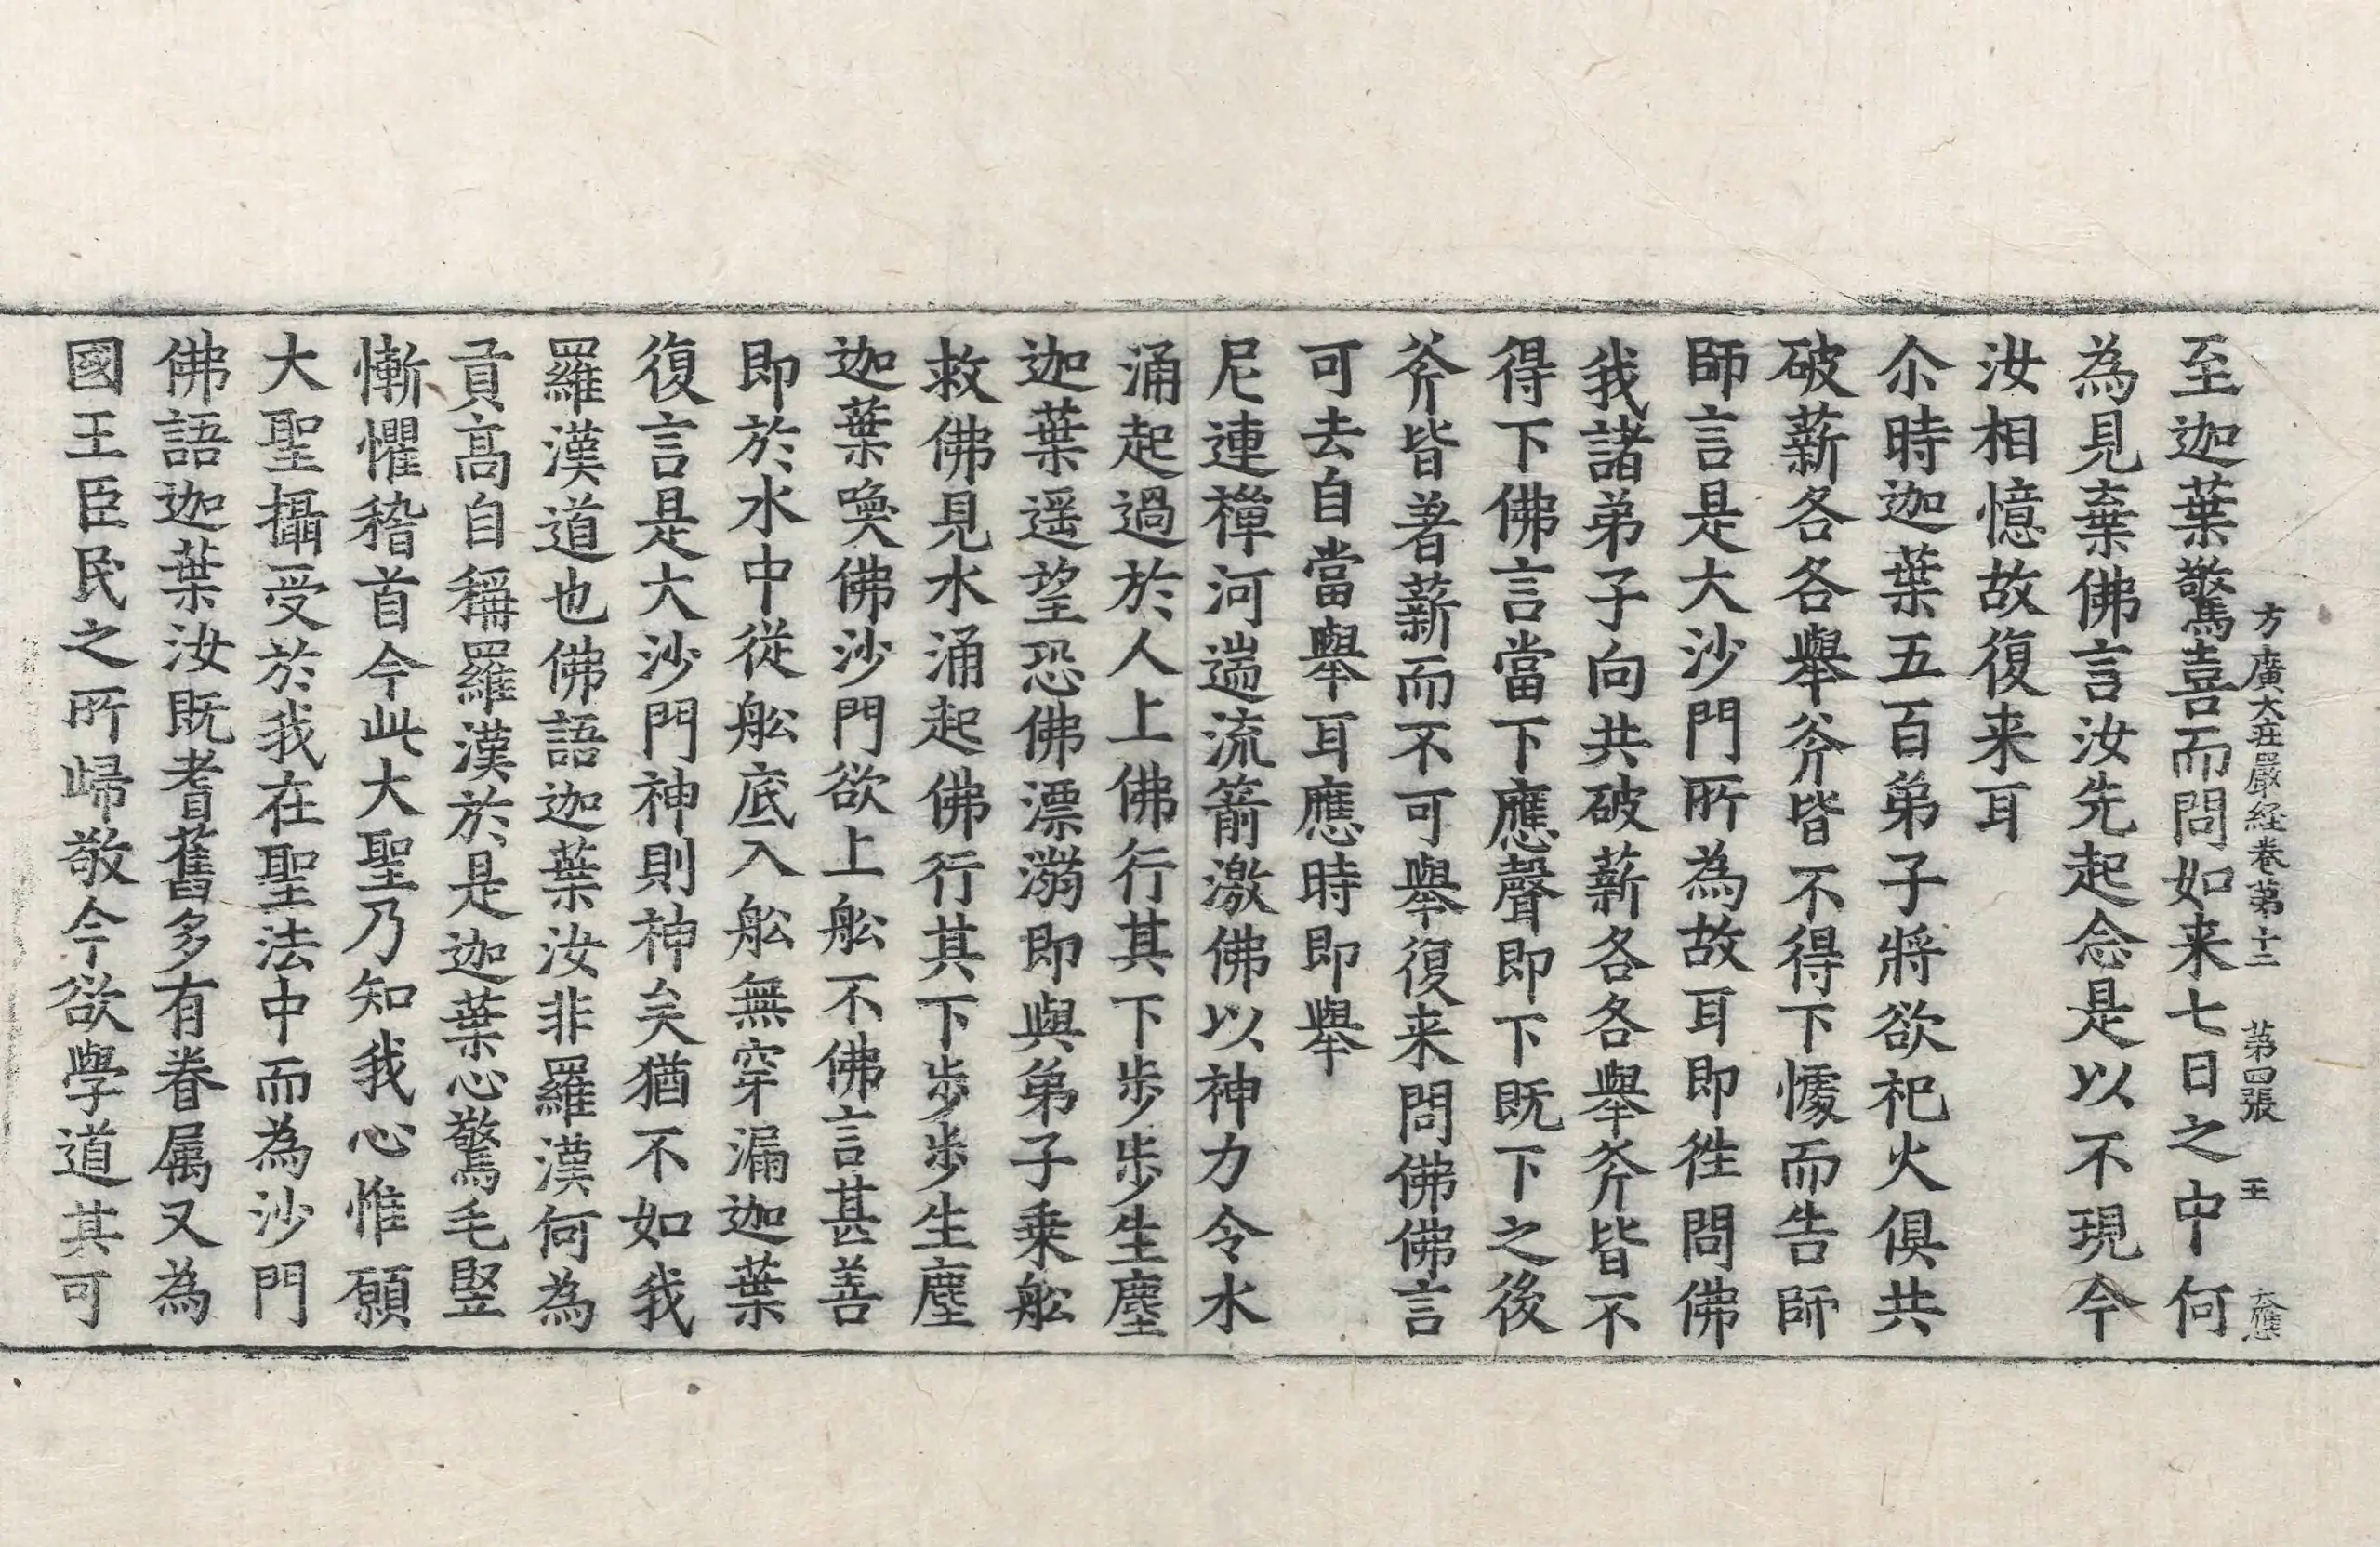 方廣大莊嚴経卷第十二 第四張 王 大應
至迦葉驚喜而問如来七日之中何
為見棄佛言汝先起念是以不現今
汝相憶故復来耳
尒時迦葉五百弟子將欲祀火俱共
破薪各各舉斧皆不得下懅而告師
師言是大沙門所為故耳即徃問佛
我諸弟子向共破薪各各舉斧皆不
得下佛言當下應聲即下下既下之後
斧皆著薪而不可舉復来問佛佛言
可去自當舉耳應時即舉
尼連樿河湍流箭激佛以神力令水
涌起過於人上佛行其下步步生塵
迦葉遥望恐佛漂溺即與弟子乗舩
救佛見水涌起佛行其下步步生塵
迦葉喚佛沙門欲上舩不佛言甚善
即於水中從舩底入舩無穿漏迦葉
復言是大沙門神則神矣猶不如我
羅漢道也佛語迦葉汝非羅漢何為
貢高自稱羅漢於是迦葉心驚毛竪
慚懼稽首今此大聖乃知我心惟願
大聖攝受於我在聖法中而為沙門
佛語迦葉汝既耆舊多有眷属又為
國王臣民之所歸敬今欲學道其可